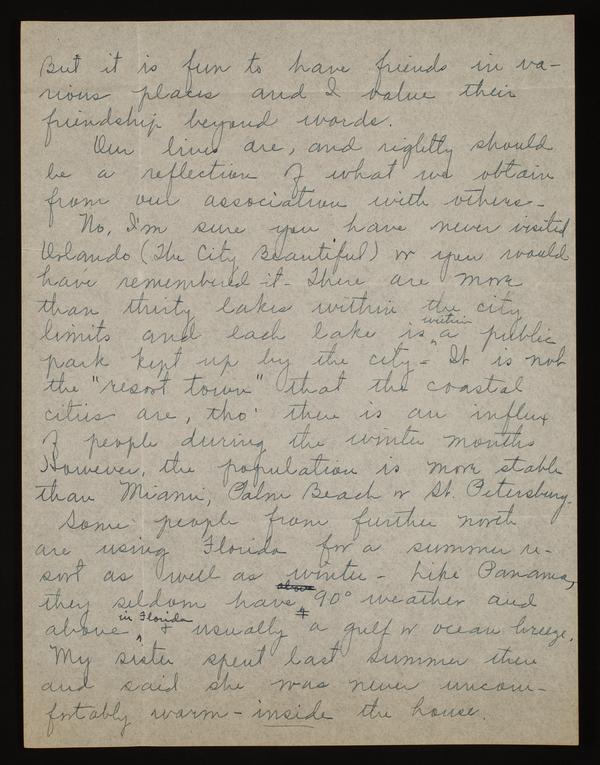 But it is fun to have friends in va-
rious places and I value their
friendship beyond words.
Our lives are, and rightly should
be a reflection of what we obtain
from our association with others-
No, I'm sure you have never visited
Orlando (The City Beautiful) or you would
have remembered it - There are more
than thirty lakes within the city
within
limits and each lake is ^ a public
park kept up by the city - It is not
the "resort town" that the coastal
cities are, tho' there is an influx
of people during the winter months
However, the population is more stable
than Miami, Palm Beach or St. Petersburg.
Some people from further north
are using Florida for a summer re-
sort as well as winter - Like Panama,
above
they seldom have 90° weather and
in Florida
above ^ & usually a gulf or ocean breeze.
My sister spent last summer there
and said she was never uncom-
fortably warm - inside the house.